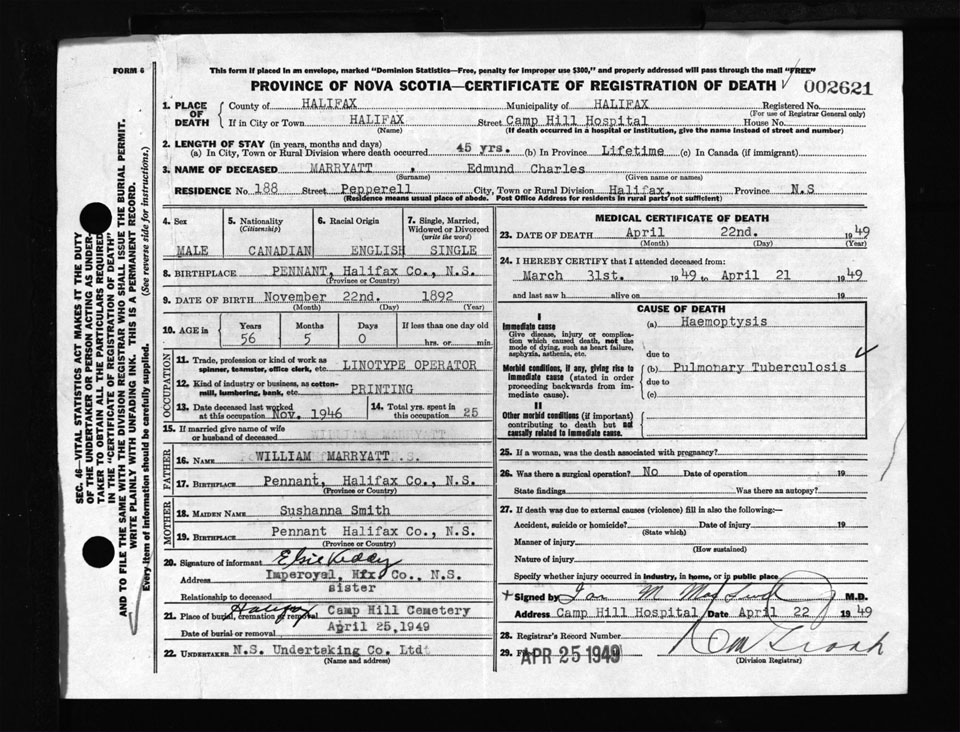 FORM 6
This form if placed in an envelope, marked "Dominion Statistics—Free, penalty for improper use $300," and properly addressed will pass through the mail "FREE"
PROVINCE OF NOVA SCOTIA—CERTIFICATE OF REGISTRATION OF DEATH 002621
1. PLACE OF DEATH
County of HALIFAX Municipality of HALIFAX Registered No.
(For use of Registrar General only)
If in City or Town HALIFAX Street Camp Hill Hospital House No.
(Name) (If death occurred in a hospital or institution, give the name instead of street and number)
2. LENGTH OF STAY (in years, months and days)
(a) In City, Town or Rural Division where death occurred 45 yrs. (b) In Province Lifetime (c) In Canada (if immigrant)
3. NAME OF DECEASED MARRYATT , Edmund Charles
(Surname) (Given name or names)
RESIDENCE No. 188 Street Pepperell City, Town or Rural Division Halifax, Province N.S
(Residence means usual place of abode. Post Office Address for residents in rural parts not sufficient)
4. Sex 5. Nationality 6. Racial Origin 7. Single, Married,
(Citizenship) Widowed or Divorced
(write the word)
MALE CANADIAN ENGLISH SINGLE
8. BIRTHPLACE PENNANT, Halifax Co., N.S.
(Province or Country)
9. DATE OF BIRTH November 22nd. 1892
(Month) (Day) (Year)
10. AGE in Years Months Days If less than one day old
56 5 0 hrs. or min.
OCCUPATION
11. Trade, profession or kind of work as
spinner, teamster, office clerk, etc. LINOTYPE OPERATOR
12. Kind of industry or business, as cotton-
mill, lumbering, bank, etc. PRINTING
13. Date deceased last worked
at this occupation Nov. 1946
14. Total yrs. spent in
this occupation 25
15. If married give name of wife
or husband of deceased WILLIAM MARRYATT
FATHER
16. NAME WILLIAM MARRYATT
17. BIRTHPLACE Pennant, Halifax Co., N.S.
(Province or Country)
MOTHER
18. MAIDEN NAME Sushanna Smith
19. BIRTHPLACE Pennant Halifax Co., N.S.
(Province or Country)
20. Signature of informant Elsie Keddy
Address Imperoyal, Hfx Co., N.S.
Relationship to deceased sister
21. Place of burial, cremation or removal Halifax Camp Hill Cemetery
Date of burial or removal April 25,1949
22. UNDERTAKER N.S. Underteking Co. Ltd
(Name and address)
MEDICAL CERTIFICATE OF DEATH
23. DATE OF DEATH April 22nd. 1949
(Month) (Day) (Year)
24. I HEREBY CERTIFY that I attended deceased from:
March 31st. 1949 to April 21 1949
and last saw h alive on 19
CAUSE OF DEATH
I
Immediate cause (a) Haemoptysis
Give disease, injury or complica-
tion which caused death, not the
mode of dying, such as heart failure,
asphyxia, asthenia, etc.
due to
Morbid conditions, if any, giving rise to (b) Pulmonary Tuberculosis
immediate cause (stated in order
proceeding backwards from im-
mediate cause).
due to
(c)
II
Other morbid conditions (if important)
contributing to death but not
causally related to immediate cause.
25. If a woman, was the death associated with pregnancy?
26. Was there a surgical operation? No Date of operation 19
State findings Was there an autopsy?
27. If death was due to external causes (violence) fill in also the following:—
Accident, suicide or homicide? Date of injury 19
(State which)
Manner of injury
(How sustained)
Nature of injury
Specify whether injury occurred in industry, in home, or in public place
Signed by Ian M M.D.
Address Camp Hill Hospital Date April 22 1949
28. Registrar's Record Number
29. APR 25 1949
(Division Registrar)
SEC. 46—VITAL STATISTICS ACT MAKES IT THE DUTY
OF THE UNDERTAKER OR PERSON ACTING AS UNDER-
TAKER TO OBTAIN ALL THE PARTICULARS REQUIRED
IN THE "CERTIFICATE OF REGISTRATION OF DEATH"
AND TO FILE THE SAME WITH THE DIVISION REGISTRAR WHO SHALL ISSUE THE BURIAL PERMIT.
WRITE PLAINLY WITH UNFADING INK. THIS IS A PERMANENT RECORD.
Every item of information should be carefully supplied. (See reverse side for instructions.)